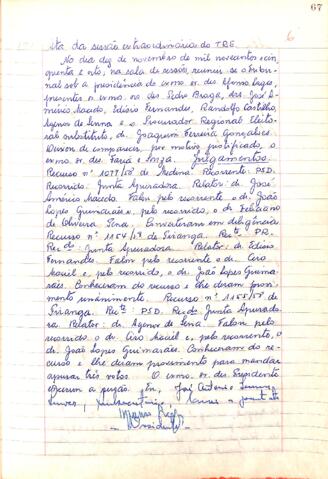 67
6
Ata da sessão extraordinária do TRE.
No dia dez de novembro de mil novecentos e cin-
quenta e oito, na sala de sessões, reuniu-se o Tribu-
nal sob a presidência do exmo. sr. des.
presentes o exmo. sr. des. Pedro Braga, drs. José A-
mérico Macedo, Edísio Fernandes, Randolfo Castilho,
Agenor de Senna e o Procurador Regional Eleito-
ral substituto, dr. Joaquim Ferreira Gonçalves.
Deixou de comparecer, por motivo justificado, o
exmo. sr. des. Faria e Souza. Julgamentos:
Recurso nº 1077/58 de Medina. Recorrente: PSD.
Recorrido: Junta Apuradora. Relator: dr. José
Américo Macedo. Falou pelo recorrente o dr. João
Lopes Guimarães e, pelo recorrido, o dr. Feliciano
de Oliveira Pena. Converteram em diligência
Recurso nº 1154/58 de Piranga. Recte: PR.
Recdo: Junta Apuradora. Relator: dr. Edísio
Fernandes. Falou pelo recorrente o dr. Ciro
Maciel e, pelo recorrido, o dr. João Lopes Guima-
rães. Conheceram do recurso e lhe deram provi-
mento unânimemente. Recurso nº 1155/58 de
Piranga. Recte: PSD. Recdo: Junta Apurado-
ra Relator: dr. Agenor de Sena. Falou pelo
recorrido o dr. Ciro Maciel e, pelo recorrente, o
dr. João Lopes Guimarães. Conheceram do re-
curso e lhe deram provimento para mandar
apurar três votos. O exmo. sr. des. Presidente
encerrou a sessão. Eu, José Antonio
Presidente